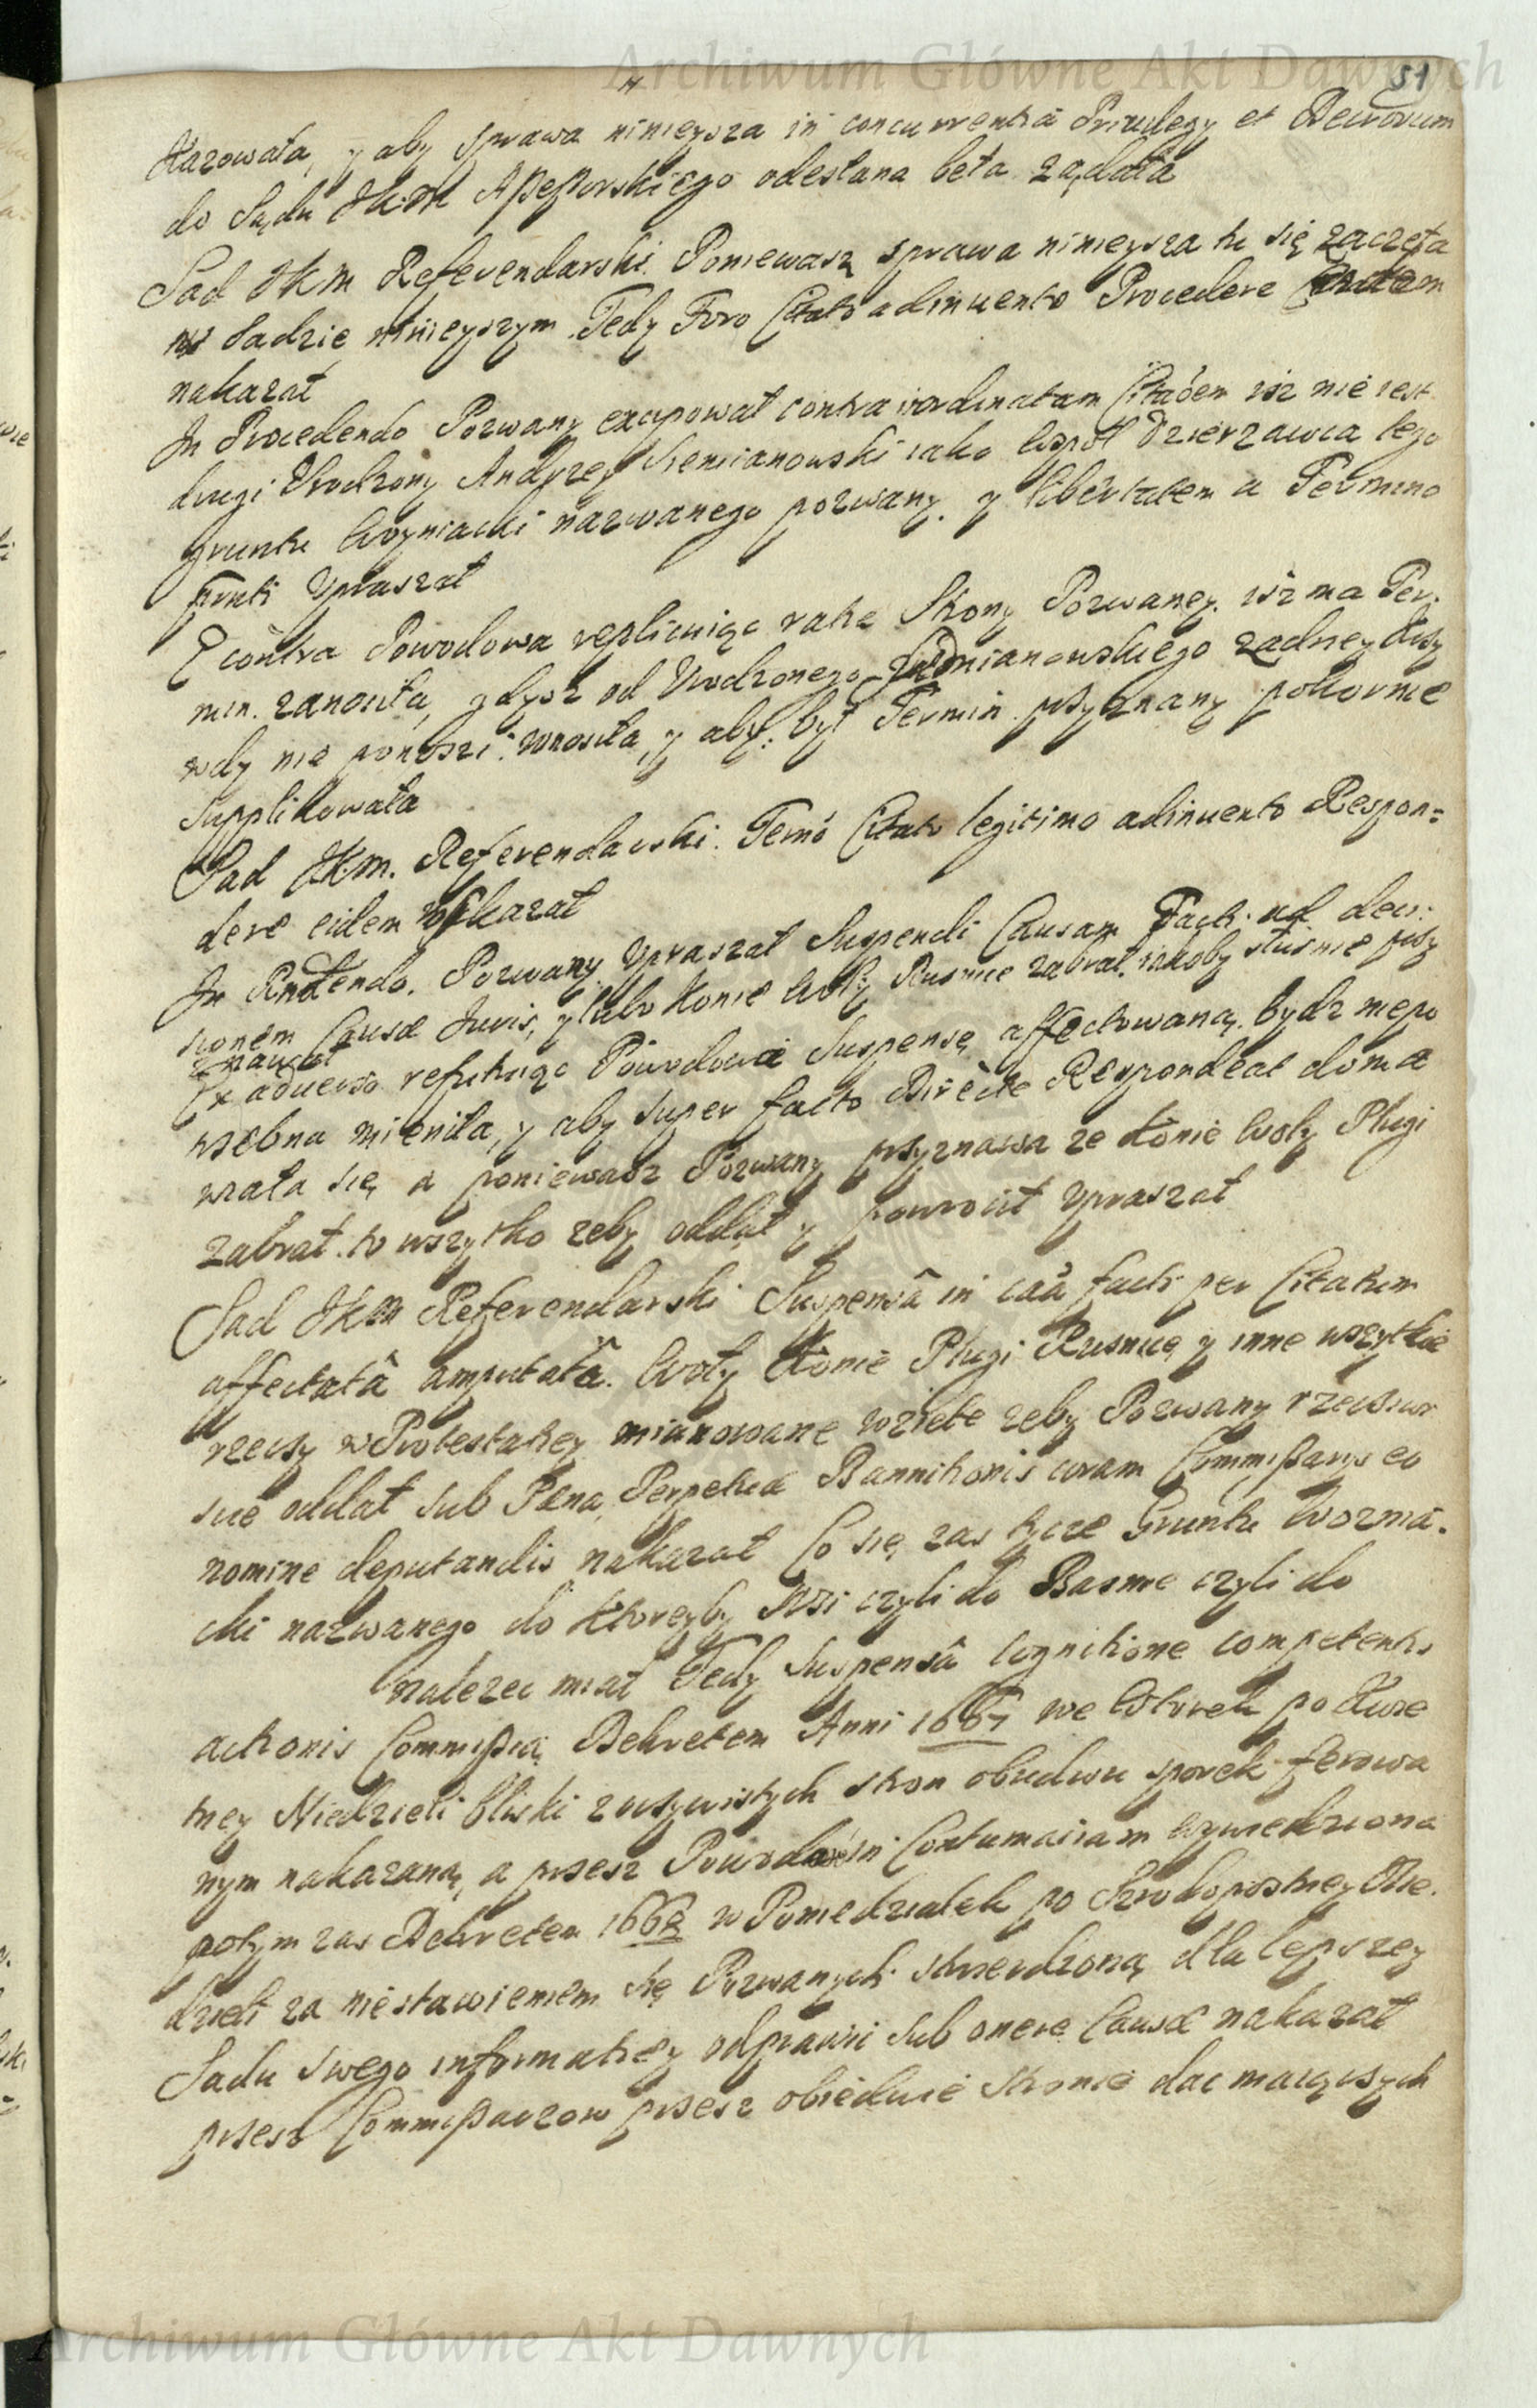 Archiwum Główne Akt Dawnych
51
kazowała, y aby sprawa ninieysza in concurrentia Priuilegy et Decretorum
do Sądu JKM Assessorskiego odesłana beła ządała
Sad JKM Referendarski. Poniewasz sprawa ninieysza tu się zaczęła
w Sadzie ninieyszym. Tedy Foro Citato adinuento Procedere
nakazał
In Procedendo Pozwany excypował contra inordinatam Citaoem isz nie iest
drugi Urodzony Andrzey Siemianowski iako wspoł Dzierzawca tego
gruntu Woyniacki nazwanego pozwany. y libertatem a Termino
upraszał
E contra Powodowa replicuiąc ratę Strony Pozwaney. isz ma Ter.
min. zanosiła, gdysz od Urodzonego Siemianowskiego zadney krzy
wdy nie ponoszi. wnosiła, y aby. był Termin przyznany pokornie
supplikowała
Sad JKM. Referendarski. Termo Citato legitimo adinuento Respon=
dere eidem nakazał
In Rndendo. Pozwany. Upraszał Suspendi Causam Facti ad deci:
sionem Causæ Juris, y lubo Konie Woły Rusnice zabrał. iakoby słusnie przy
znawał
Ex aduerso refutuiąc Powodowa Suspensę affectowaną. bydz niepo
trzebna mieniła, y aby super facto Directe Respondeat doma
wiała się a poniewasz Pozwany przyznawa ze Konie Woły Plugi
zabrał. to wszytko zeby oddał y powrocił Upraszał
Sad JKM Referendarski Suspensâ in caâ facti per Citatum
affectatâ amputatâ. Woły Konie Plugi Rusnice y inne wszytkie
rzeczy w Protestatiey mianowane wziete zeby Pozwany rzeczwi
scie oddał sub Pæna Perpetuæ Bannitionis coram Commissarys eo
nomine deputandis nakazał Co się zas tycze Gruntu Woznia.
cki nazwanego do ktoreyby Wsi czyli do Basnie czyli do
nalezec miał Tedy Suspensâ Cognitione competentis
actionis Commissią Dekretem Anni 1667 we Wtorek po Kwie
tney Niedzieli bliski z oczywistych stron obudwu sporek ferowa
nym nakazaną, a przesz Powodow in Contumaciam wywiedziona
potym zas Dekretem 1668 w Poniedziałek po Srodopostney Nie.
dzieli za niestawieniem się Pozwanych stwierdzoną dla lepszey
Sadu swego informatiey odprawic sub onere Causæ nakazał
przesz Commissarzow przesz obiedwie Stronie dac maiących
Archiwum Główne Akt Dawnych